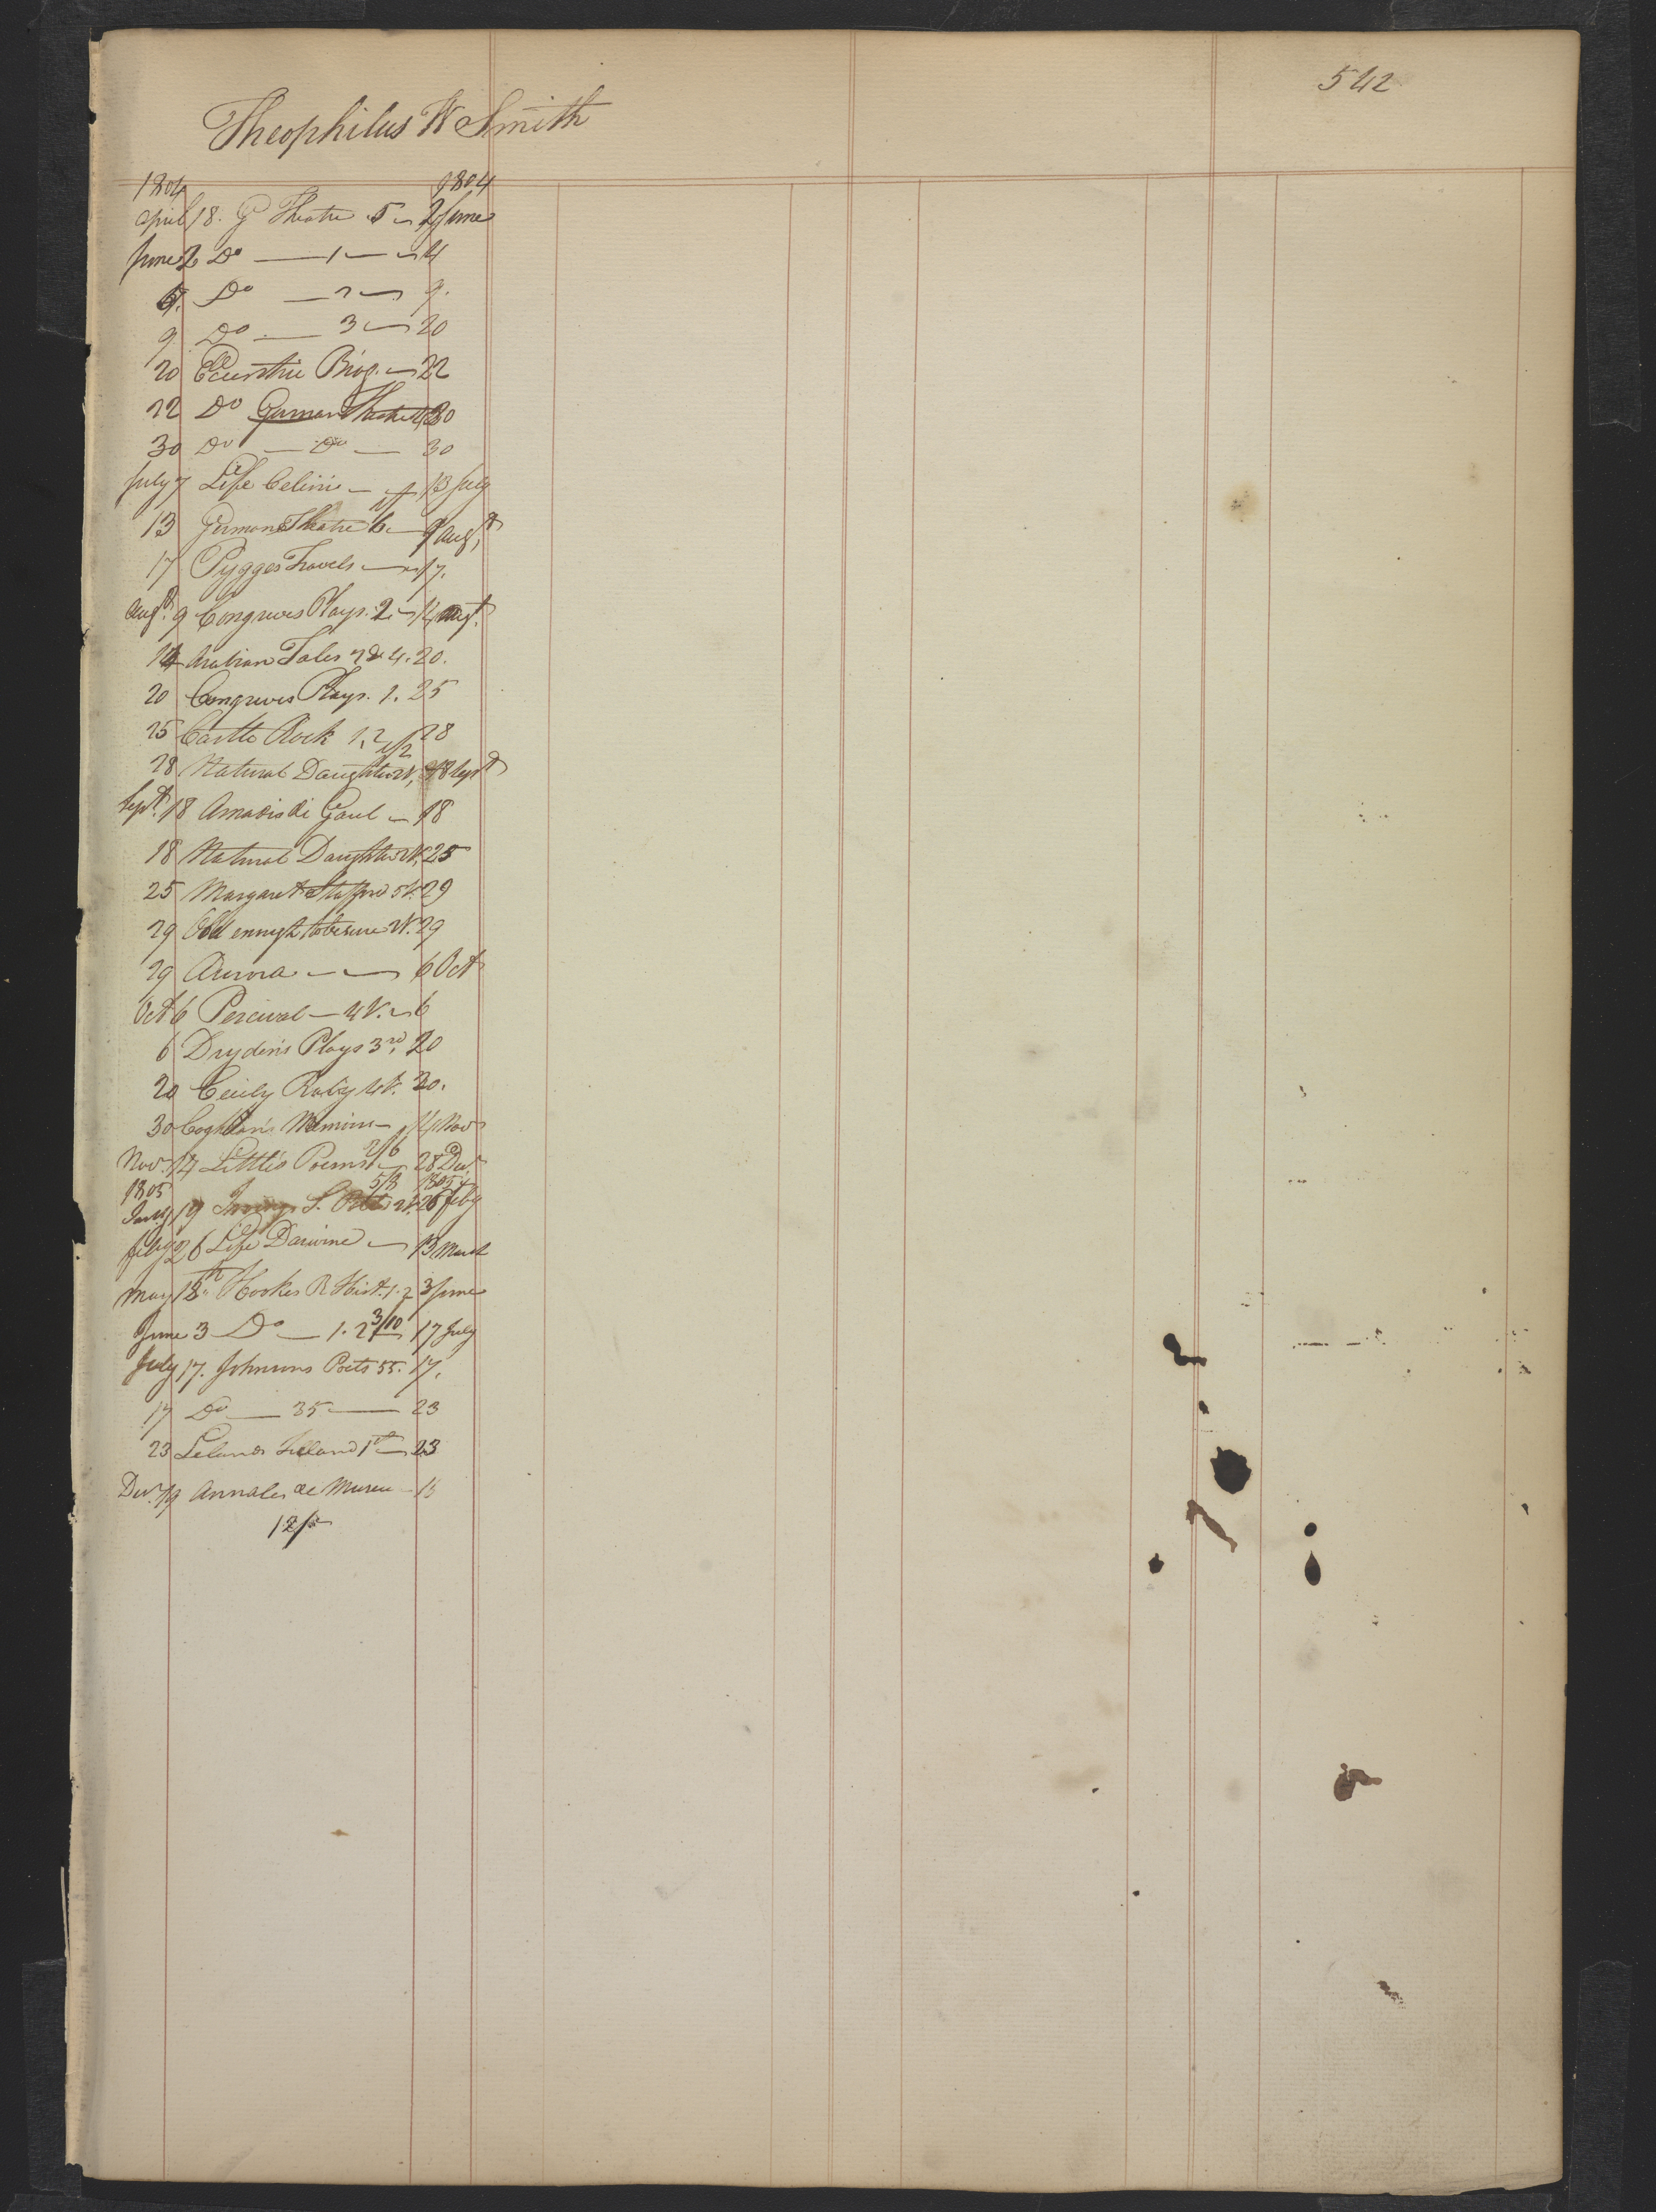 542
Theophilus W Smith
1804 1804
April 18. G Theatre 5 2 June
June 2 Do — 1 — 4
Do — 2 — 9.
9 Do — 3 — 20
20 Eccentric Biog. — 22
22 Do German Theatre 30
30 Do — Do — 30
July 7 Life Celini — 13 July
13 German Theatre 6 — 9 Augt
17 Pygges Travels — 17.
Augt 9 Congreves Plays. 2 — 14 Augt.
14 Arabian Tales 2 & 4. 20.
20 Congreves Plays. 1. 25
25 Castle Rock 1, 2 28
28 Natural Daughter 2V, 18 Sept
Sept. 18 Amadis de Gaul — 18
18 Natural Daughter 2V. 25
25 Margaret Strafford 5V. 29
29 Odd enough to be sure 2V. 29
29 Aurora — — 6 Oct
Oct 6 Percival — 4V. — 6
6 Dryden's Plays 3rd, 20
20 Cecily Raby 4V. 30.
30 Coghlan's Memoirs — 14 Nov
2/6
Nov. 14 Little's Poems — 28 Decr
1805 5/8 1805
Jany 19 2V. 26 Feby
Feby 26 Life Darwine — 13 March
May 18th Hookes R Hist. 1. 2 3 June
June 3 Do — 1. 2 3/10 17 July
July 17. Johnsons Poets 55. 17.
17 Do — 35 — 23
23 Lelands Ireland 1st — 23
Decr. 19 Annales de Museu —
12/